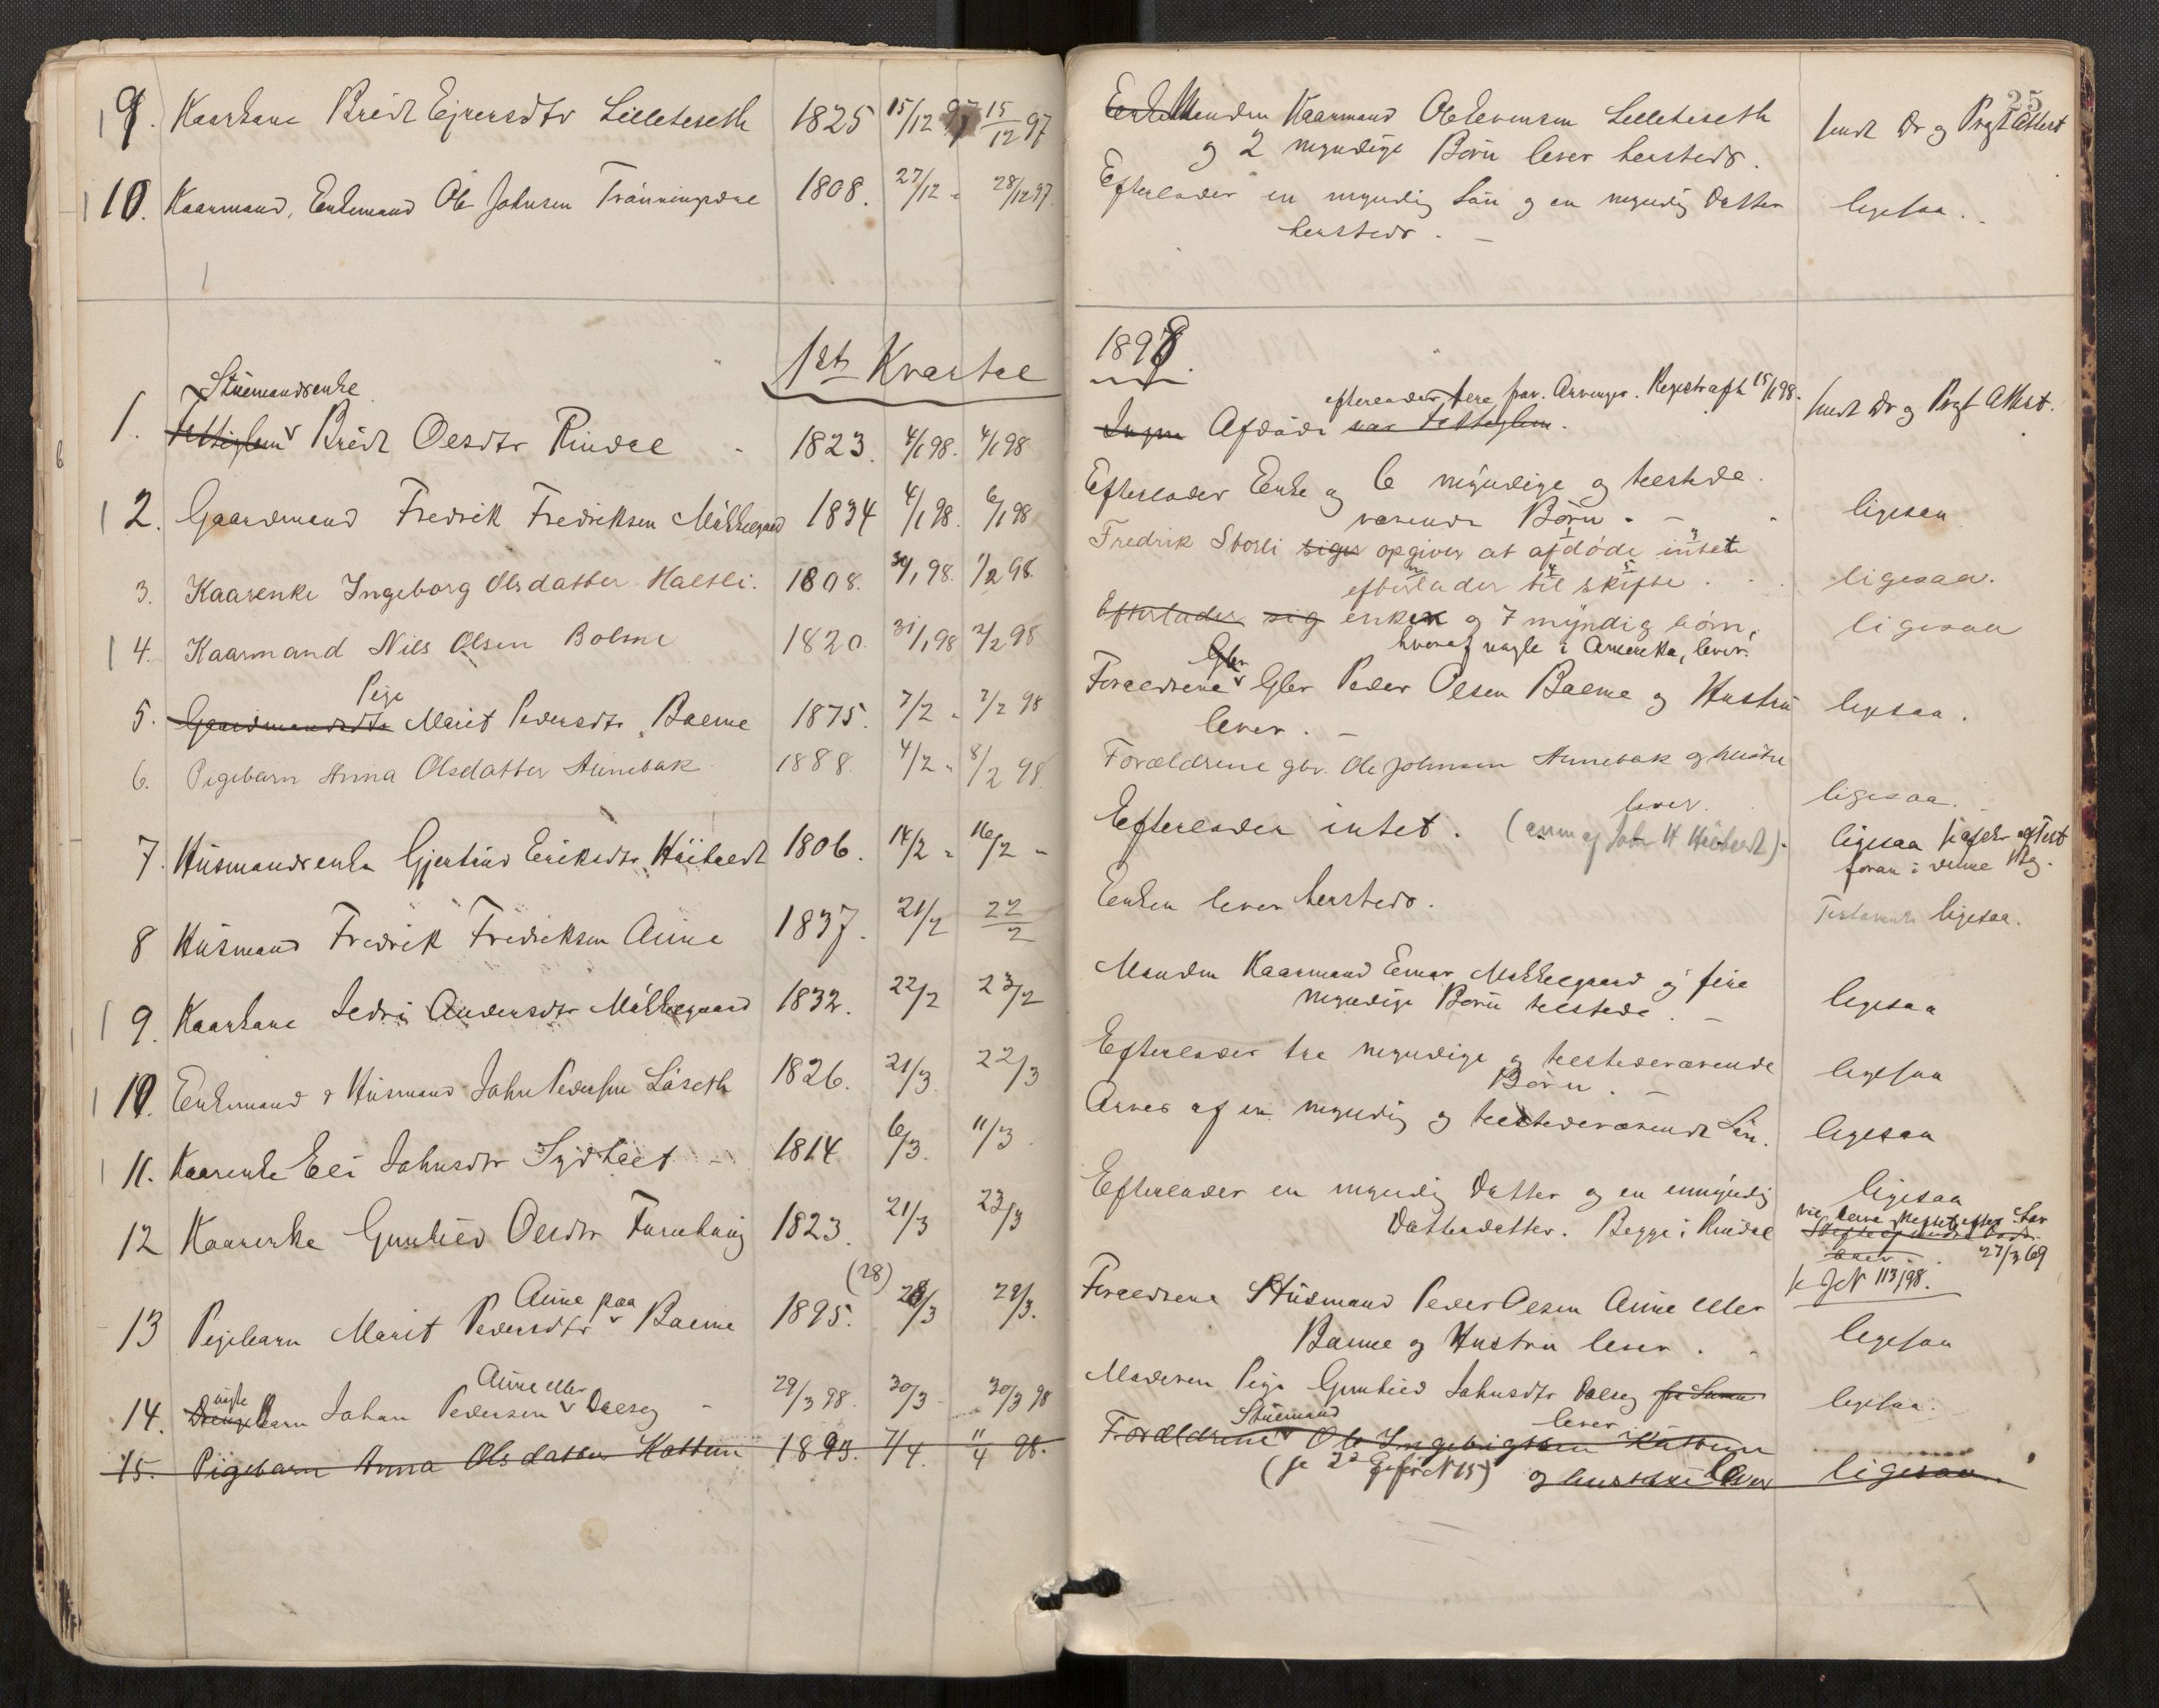 25
9. Kaarkone Brit Ejversdtr Lilleteseth 1825 15/12 97 15/12 97
Enke Manden Kaarmand Ole Evensen Lilleteseth
og 2 myndige Børn lever hersteds.
sendt Dr og Prgt Attest
10. Kaarmand, Enkemand Ole Johnsen Trönningsdal 1808. 27/12 " 28/12 97.
Efterlader en myndig Sön og en myndig Datter
hersteds. -
ligesaa.
1st Kvartal
1898.
Stuemandsenke
1. Fattiglem Brit Olsdtr Rindal 1823. 4/1 98. 4/1 98
efterlader flere fra. Arvinger. Registraft 15/1 98.
Ingen Afdøde var Fattiglem.
sendt Dr og Prgt Attest.
2. Gaardmand Fredrik Fredriksen Mökkelgaard 1834 4/1 98. 6/1 98
Efterlader Enke og 6 myndige og tilstede
værende Børn. -
ligesaa
3. Kaarenke Ingeborg Olsdatter Haltli. 1808. 30/1 98. 1/2 98.
Fredrik Storli siger opgiver at afdøde intet
efterlader til skifte.
ligesaa.
4. Kaarmand Nils Olsen Bolme 1820. 31/1 98 2/2 98
Efterlader sig enke og 7 myndig börn,
hvoraf nogle i Amerika, lever.
ligesaa
Pige
5. Gaardmandsdtr Marit Pedersdtr Bolme 1875. 7/2 " 7/2 98
Gbr
Forældrene Gbr Peder Olsen Bolme og Hustru
lever. -
ligesaa.
6. Pigebarn Anna Olsdatter Aunebak 1888. 4/2 " 8/2 98.
Forældrene gbr. Ole Johnsen Aunebak og hustru
lever.
ligesaa.
7. Husmandsenke Gjertrud Eriksdtr Höibolt 1806. 14/2 " 16/2 "
Efterlader intet.
ligesaa
foran i denne
8 Husmand Fredrik Fredriksen Aune 1837. 21/2 22/2
Enken lever hersteds.
Testament ligesaa.
9. Kaarkone Sedri Andersdtr Mökkelgaard 1832. 22/2 23/2
Manden Kaarmand Einar Mökkelgaard og fire
myndige Børn tilstede. -
ligesaa
10. Enkemand & Husmand John Pedersen Löseth 1826. 21/3. 22/3
Efterlader tre myndige og tilstedeværende
Børn.
ligesaa
11. Kaarenke Eli Johnsdtr Sydhöet - 1814 6/3. 11/3.
Arves af en myndig og tilstedeværende Sön.
ligesaa
12 Kaarenke Gunhild Olsdtr Furuhaug 1823. 21/3 23/3
Efterlader en myndig Datter og en umyndig
Datterdatter. Begge i Rindal
ligesaa
27/3 69
k JN 113/98.
Aune paa (28)
13 Pigebarn Marit Pedersdtr Bolme 1895. 28/3 29/3.
Forældrene Husmand Peder Olsen Aune eller
Bolme og Hustru lever.
ligesaa
Aune eller
14. Drengebarn Johan Pedersen Dalseg - 29/3 98. 30/3 30/3 98
Moderen Pige Gunhild Johnsdtr Dalseg
lever
ligesaa.
15. Pigebarn Anna Olsdatter Kattum 1893. 7/4. 11/4 98.
Stuemand
Forældrene Ole Ingebrigtsen Kattum
(se 2d N 15) og hustru lever
ligesaa.